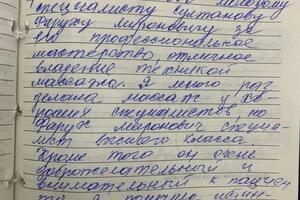 специалисту Султанову
Фаруху Мироновичу за
его профессиональное
мастерство, отличное
владение техникой
массажа. Я много раз
делала массаж у хо-
роших специалистов, но
Фарух Миронович специа-
лист высшего класса
Кроме того он очень
доброжелательный и
внимательный к пациен